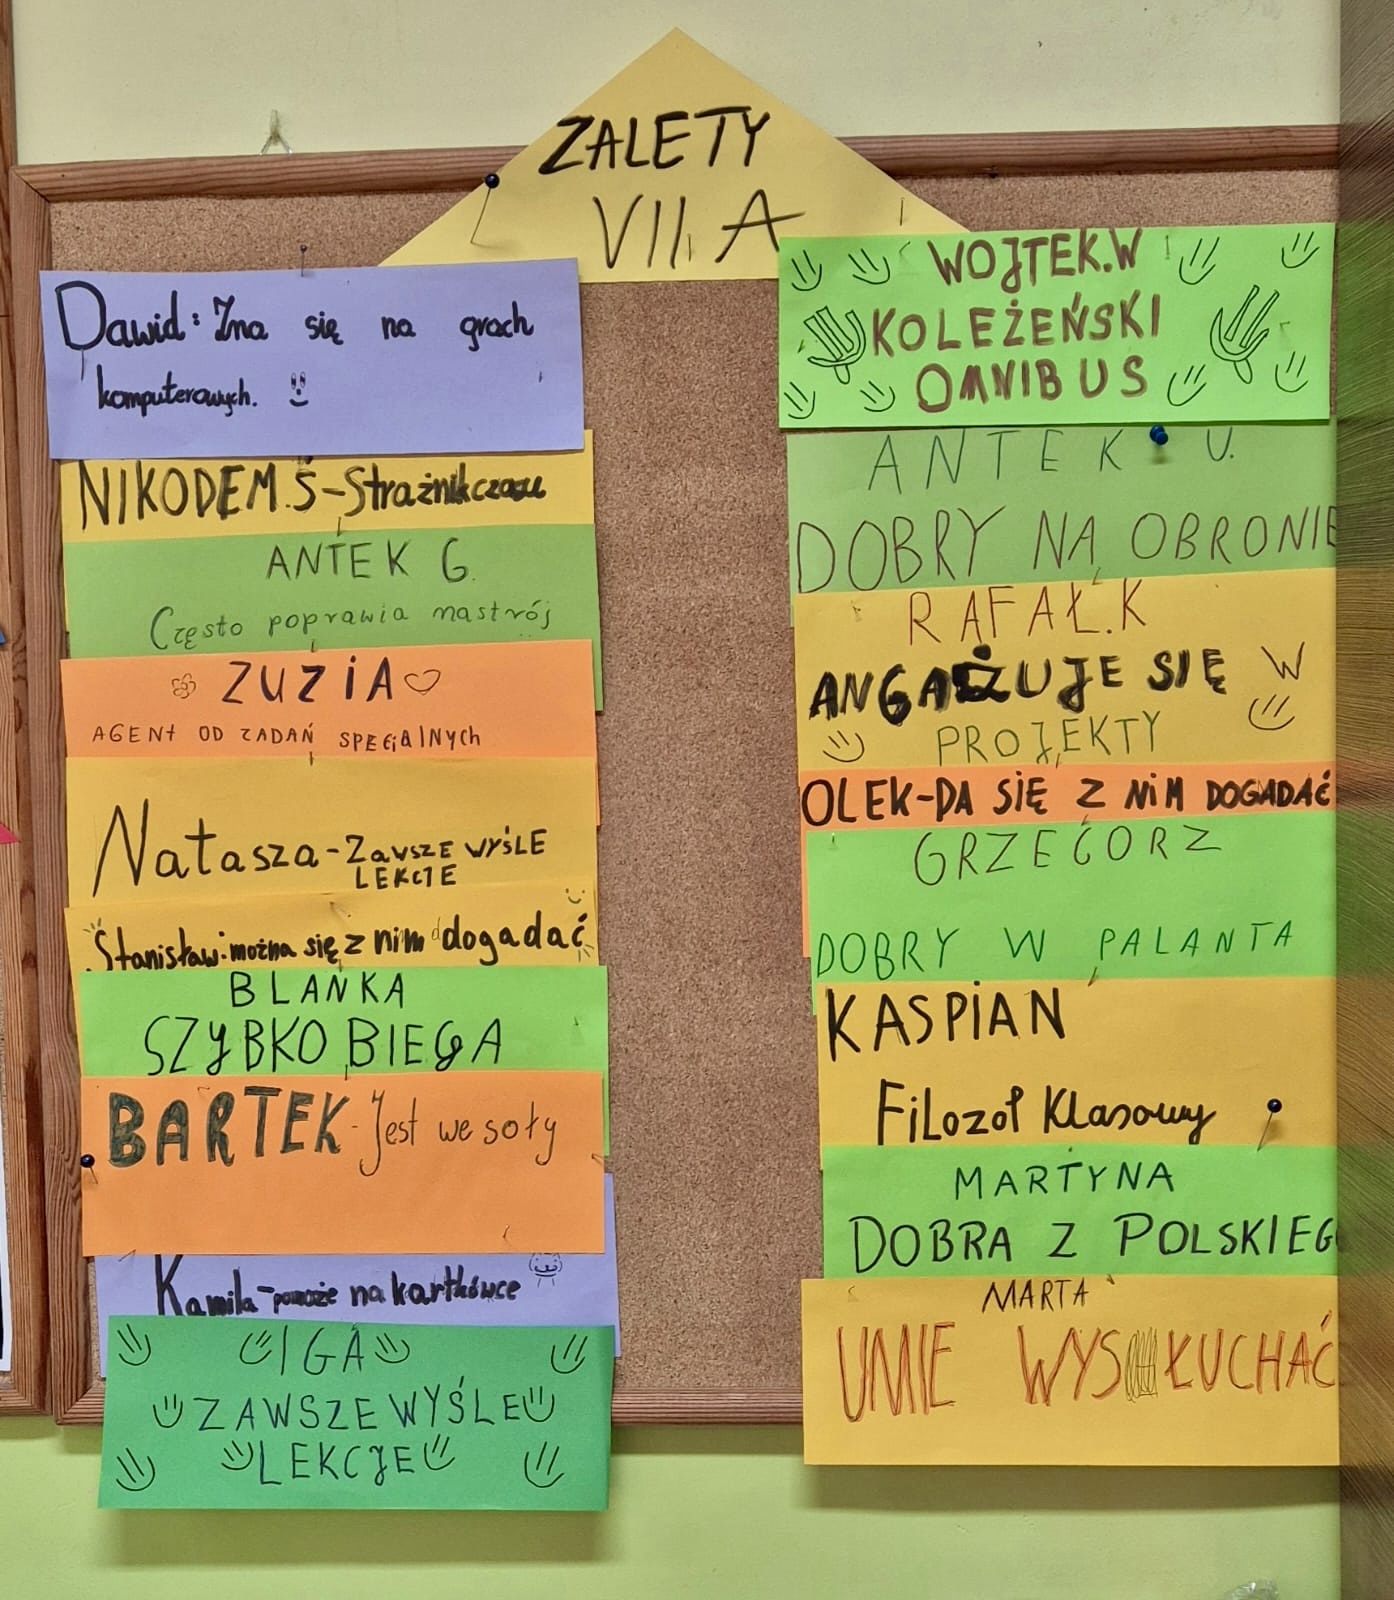 ZALETY
VII A
Dawid: Zna się na grach
komputerowych.
NIKODEM.Ś-Strażnik czasu
ANTEK G.
Często poprawia nastrój
ZUZiA
AGENt OD ZADAŃ SPECjAlNYch
Natasza-ZAWSZE WYŚLE
LEKCJE
Stanisław: można się z nim dogadać
BLANKA
SZYBKO BIEGA
BARTEK-Jest wesoły
Kamila-pomoże na kartkówce
IGA
ZAWSZE WYŚLE
LEKCJE
WOJTEK.W
KOLEŻEŃSKI
OMNIBUS
ANTEK U.
DOBRY NA OBRONIE
RAFAŁ.K
ANGAŻUJE SIĘ W
PROJEKTY
OLEK-DA SIĘ Z NiM DOGADAĆ
GRZEGORZ
DOBRY W PALANTA
KASPiAN
FiLozof Klasowy
MARTYNA
DOBRA Z POLSKIEG
MARTA
UMIE WYSŁUCHAĆ